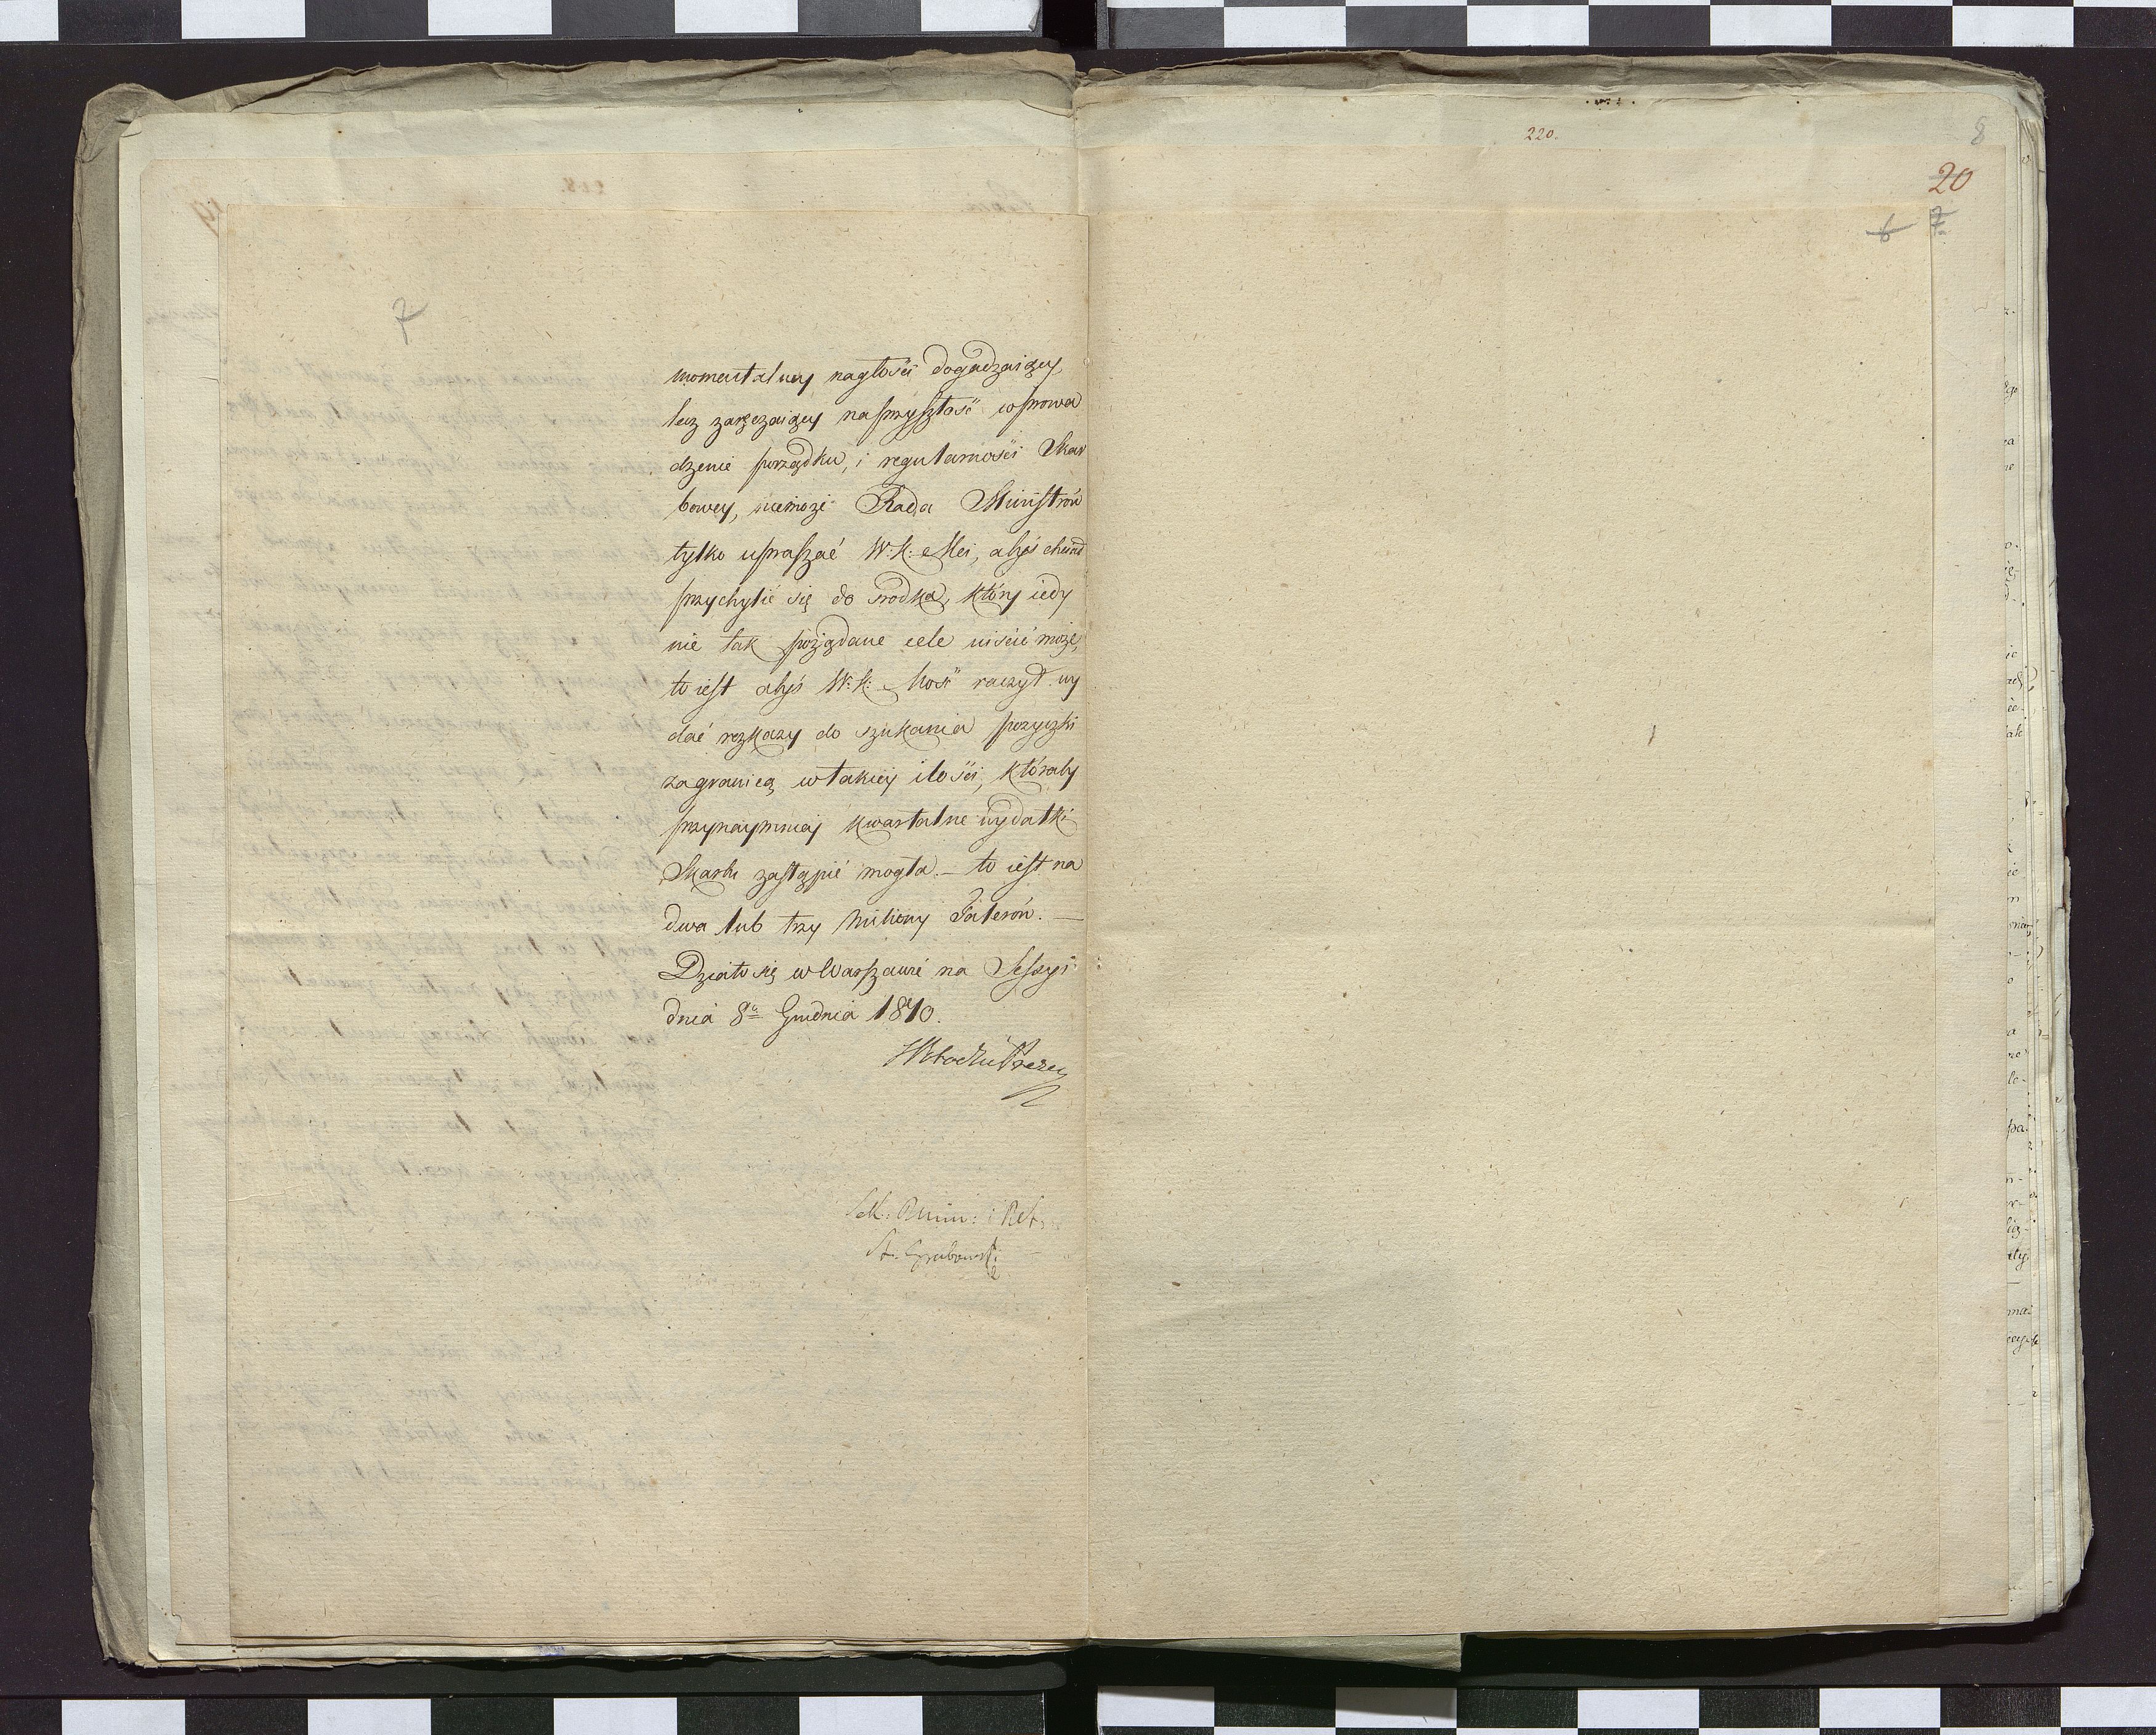 7
momentalney nagłości dogadzaiącey,
lecz zaręczaiącey naprzyszłość wprowa
dzenie porządku, i regularności Skar
bowey, niemoże Rada Ministrów
tylko upraszać W: K: Mci, abyś chciał
przychylić się do środka, który iedy
nie tak pożądane cele uiścić może,
to iest abyś W: K: Mość raczył wy
dać rozkazy do szukania pożyczki
zagranicą wtakiéy ilości, któraby
przynaymniey kwartalne wydatki
Skarbu zastąpić mogła. – to iest na
dwa lub trzy miliony Talerów. —
Działo się w Warszawie na Sessyi
dnia 8º Grudnia 1810.
Sek:
St. Grabowski
220.
8
20
6 7